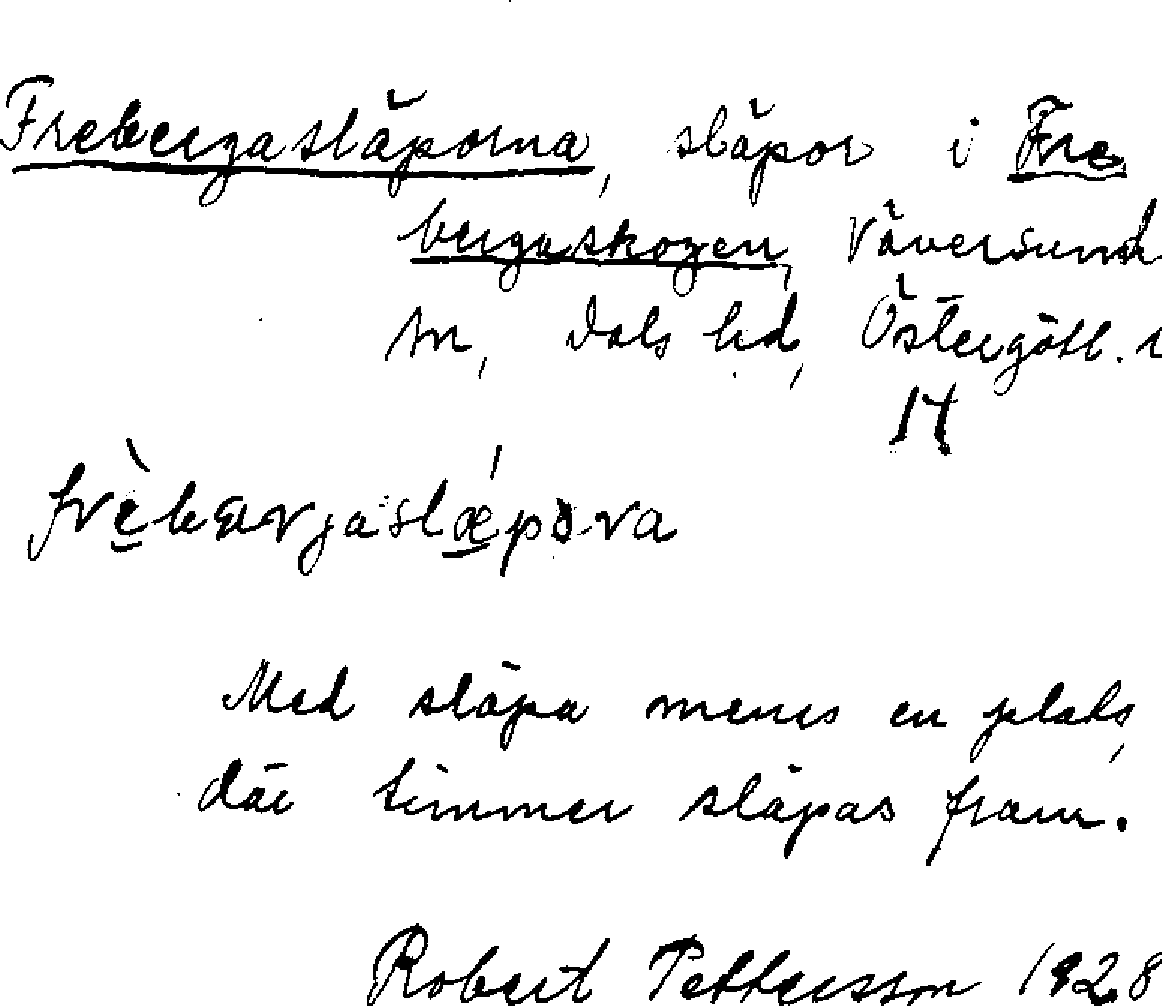 Frebergasläporna, släpor i Fre
bergaskogen, Väversunda
sn, Dals hd, Östergötl. l
17
frèbærjaslǽpora
Med släpa menes en plats,
där timmer släpas fram.
Robert Pettersson 1928